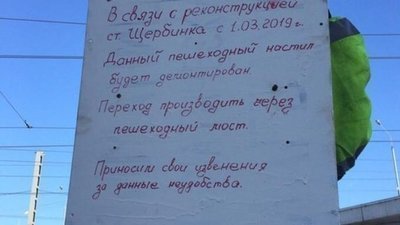 В связи с реконструкцией
ст. Щербинка с 1.03.2019 г.
Данный пешеходный настил
будет демонтирован.
Переход производить через
пешеходный мост.
Приносим свои извенения
за данные неудобства.